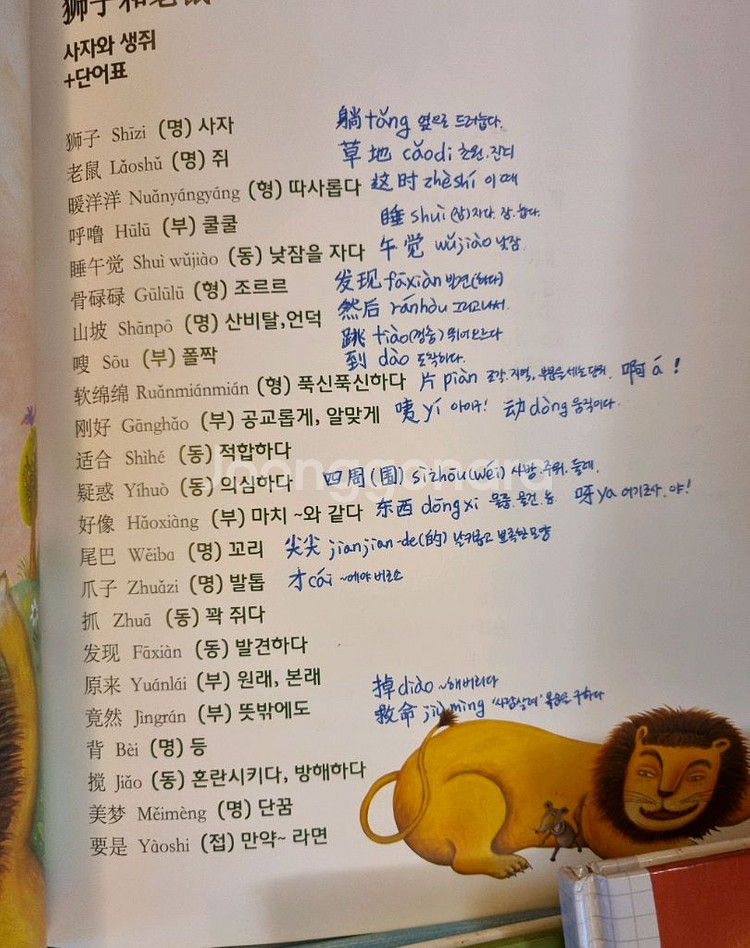 狮子和老鼠
사자와 생쥐
+단어표
狮子 Shīzi (명) 사자
躺 tǎng 옆으로 드러눕다.
老鼠 Lǎoshǔ (명) 쥐
草地 cǎodì 초원. 잔디
暖洋洋 Nuǎnyángyáng (형) 따사롭다
这时 zhèshí 이 때
呼噜 Hūlū (부) 쿨쿨
睡 shuì 자다. 잠.
睡午觉 Shuì wǔjiào (동) 낮잠을 자다
午觉 wǔjiào 낮잠
骨碌碌 Gūlūlū (형) 조르르
发现 fāxiàn 발견(하다)
山坡 Shānpō (명) 산비탈,언덕
然后 ránhòu 그리고나서.
跳 tiào(껑충) 뛰어오르다
嗖 Sōu (부) 폴짝
到 dào 도착하다.
软绵绵 Ruǎnmiánmián (형) 푹신푹신하다
片 piàn 조각. 지역, 부분을 세는 단위.
啊 á !
刚好 Gānghǎo (부) 공교롭게, 알맞게
咦 yí 아이구!
动 dòng 움직이다.
适合 Shìhé (동) 적합하다
疑惑 Yíhuò (동) 의심하다
四周(围) sìzhōu(wéi) 사방. 주위. 둘레.
好像 Hǎoxiàng (부) 마치 ~와 같다
东西 dōngxi 물품. 물건. 놈
呀 ya 어기조사. 야!
尾巴 Wěiba (명) 꼬리
尖尖 jianjian-de(的) 날카롭고 뾰족한 모양
爪子 Zhuǎzi (명) 발톱
才 cái ~에야 비로소
抓 Zhuā (동) 꽉 쥐다
发现 Fāxiàn (동) 발견하다
原来 Yuánlái (부) 원래, 본래
掉 diào ~해버리다
竟然 Jìngrán (부) 뜻밖에도
救命 jiùmìng '사람살려' 목숨을 구하다
背 Bèi (명) 등
搅 Jiǎo (동) 혼란시키다, 방해하다
美梦 Měimèng (명) 단꿈
要是 Yàoshi (접) 만약~ 라면
joonggonara